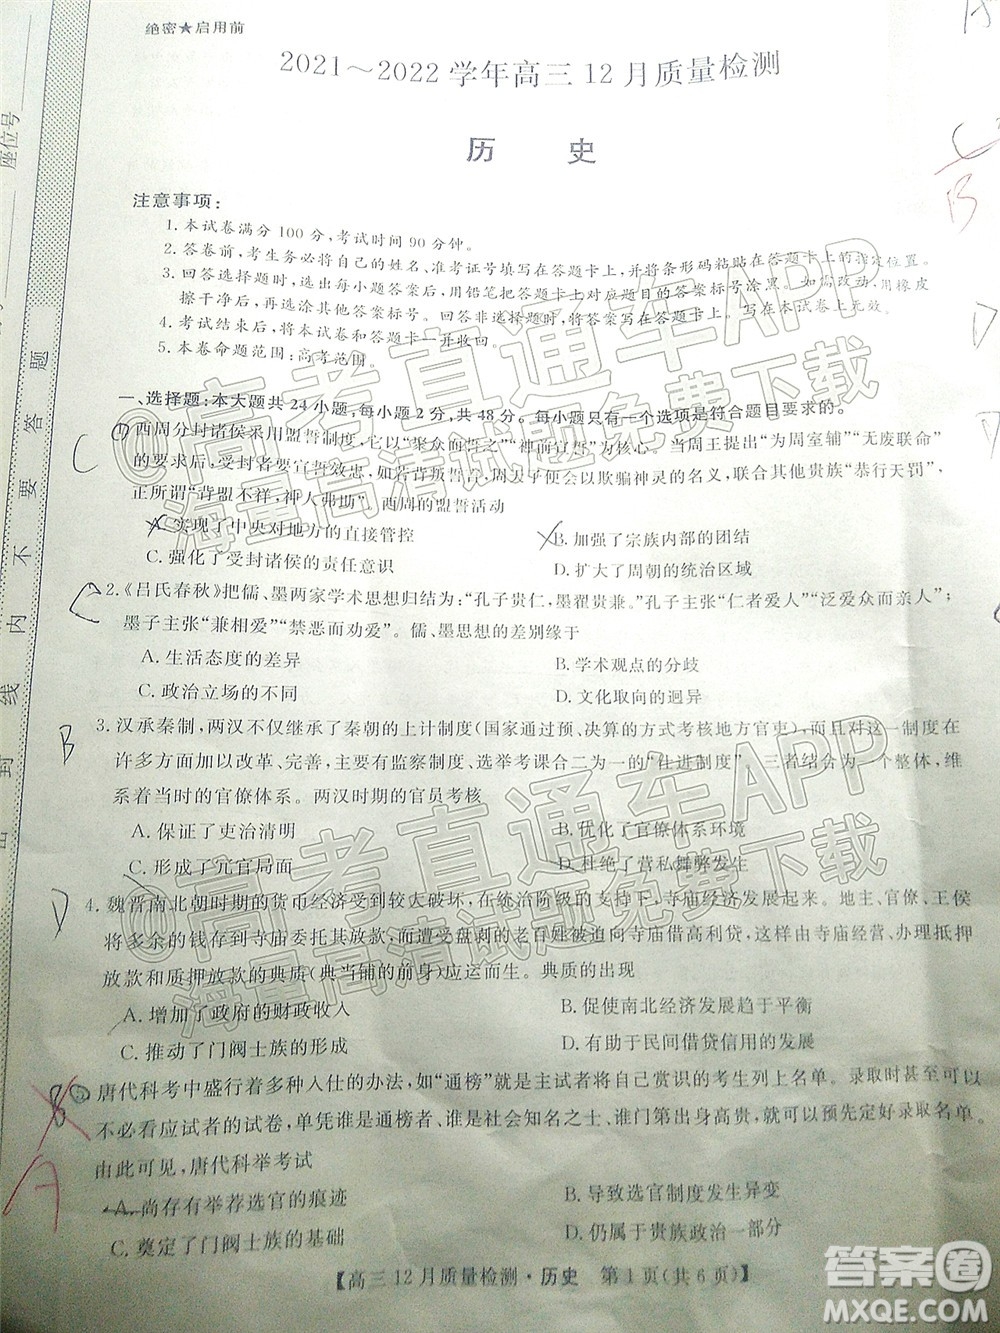 绝密★启用前
2021～2022学年高三12月质量检测
历 史
注意事项：
1. 本试卷满分100分，考试时间90分钟。
2. 答卷前，考生务必将自己的姓名、准考证号填写在答题卡上，并将条形码粘贴在答题卡上的指定位置。
3. 回答选择题时，选出每小题答案后，用铅笔把答题卡上对应题目的答案标号涂黑。如需改动，用橡皮
擦干净后，再选涂其他答案标号。回答非选择题时，将答案写在答题卡上。写在本试卷上无效。
4. 考试结束后，将本试卷和答题卡一并收回。
5. 本卷命题范围：高考范围。
一、选择题：本大题共24小题，每小题2分，共48分。每小题只有一个选项是符合题目要求的。
1. 西周分封诸侯采用盟誓制度，它以“聚众而誓之”“神而宣誓”为核心，当周王提出“为周室辅”“无废联命”
的要求后，受封者要宣誓效忠，如若背叛誓言，周天子便会以欺骗神灵的名义，联合其他贵族“恭行天罚”，
正所谓“背盟不祥，神人弗助”。西周的盟誓活动
A. 实现了中央对地方的直接管控
B. 加强了宗族内部的团结
C. 强化了受封诸侯的责任意识
D. 扩大了周朝的统治区域
2.《吕氏春秋》把儒、墨两家学术思想归结为：“孔子贵仁，墨翟贵兼。”孔子主张“仁者爱人”“泛爱众而亲人”，
墨子主张“兼相爱”“禁恶而劝爱”。儒、墨思想的差别缘于
A. 生活态度的差异
B. 学术观点的分歧
C. 政治立场的不同
D. 文化取向的迥异
3. 汉承秦制，两汉不仅继承了秦朝的上计制度（国家通过预、决算的方式考核地方官吏），而且对这一制度在
许多方面加以改革、完善，主要有监察制度、选举考课合二为一的“仕进制度”，三者结合为一个整体，维
系着当时的官僚体系。两汉时期的官员考核
A. 保证了吏治清明
B. 优化了官僚体系环境
C. 形成了冗官局面
D. 杜绝了营私舞弊发生
4. 魏晋南北朝时期的货币经济受到较大破坏，在统治阶级的支持下，寺庙经济发展起来。地主、官僚、王侯
将多余的钱存到寺庙委托其放款，而遭受盘剥的老百姓被迫向寺庙借高利贷，这样便由寺庙经营、办理抵押
放款和质押放款的典质（典当铺的前身）应运而生。典质的出现
A. 增加了政府的财政收入
B. 促使南北经济发展趋于平衡
C. 推动了门阀士族的形成
D. 有利于民间借贷信用的发展
5. 唐代科考中盛行着多种入仕的办法，如“通榜”就是主试者将自己赏识的考生列上名单。录取时甚至可以
不必看应试者的试卷，单凭谁是通榜者、谁是社会知名之士、谁门第出身高贵，就可以预先定好录取名单。
由此可见，唐代科举考试
A. 尚存有举荐选官的痕迹
B. 导致选官制度发生异变
C. 奠定了门阀士族的基础
D. 仍属于贵族政治一部分
【高三12月质量检测·历史 第1页（共6页）】
座位号
密 封 线 内 不 要 答 题
C
C
B
D
B
A
C
B
D
D
@高考直通车APP
海量高清试题免费下载
@高考直通车APP
海量高清试题免费下载
答案圈
MXQE.COM